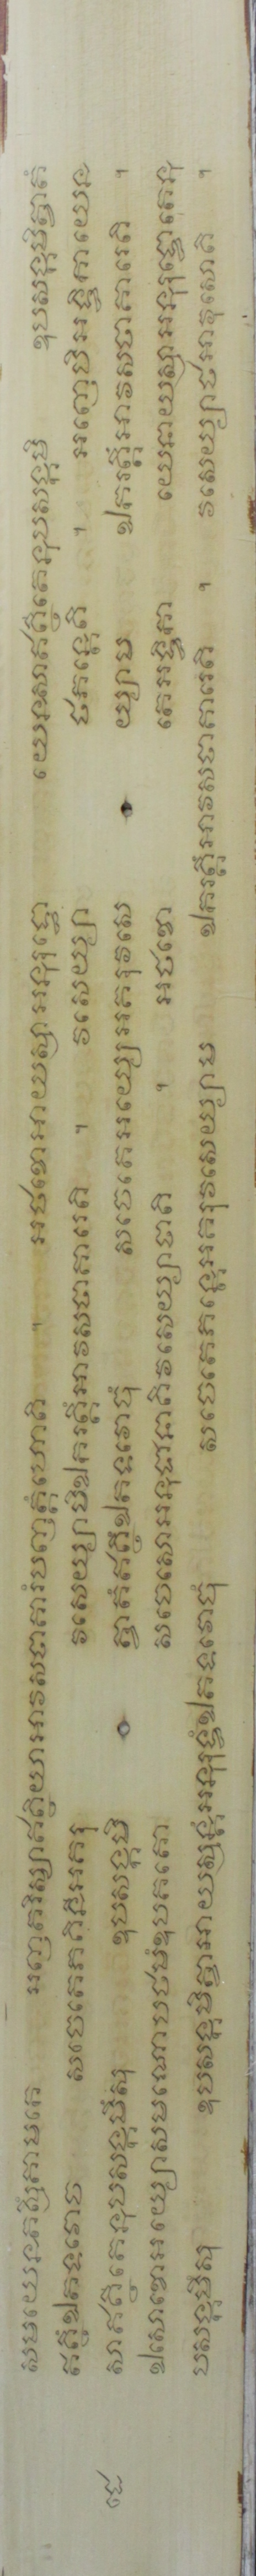 សមយេនតស្មឹគាមកេ អញ្ញតរិស្សាឥត្ថិយាអាវសថាគារំបញ្ញត្តំហោតិ ។ អថខោអាយស្មាអនុរុទ្ធោ យេនសាឥត្ថីតេនុបសង្កមិ ឧបសង្កមិត្វាតំ
ឥត្ថឹឯតទវោច សចេតេភគិនីអគរុ វសេយ្យាមិឯករត្តឹអាវសថាគារេតិ ។ វសេយ្យា ថភន្តេតិ ។ អញ្ញេបិអទ្ធិកាយេន
៩៤ សាឥត្ថីតេនុបសង្កមឹសុ ឧបសង្កមិ ត្វាតំឥត្ថឹឯតទវោចុំ សចេតេអយ្យេអគរុវសេ យ្យាម ឯករត្តឹអាវសថាគារេតិ ។
ឯសោខោអយ្យោសមណោបឋមំឧបគតោ សចេសោអនុជានាតិវសេយ្យាថាតិ ។ អថខោ តេអទ្ធិកា យេនាយស្មាអនុរុទ្ធោតេនុ
បសង្កមឹសុ ឧបសង្កមិត្វាអាយស្មន្តំអនុរុទ្ធំឯតទវោចុំ សចេតេភន្តេអគរុវសេយ្យាម ឯករត្តឹអាវសថាគារេតិ ។ វសេយ្យាថអាវុសោតិ ។